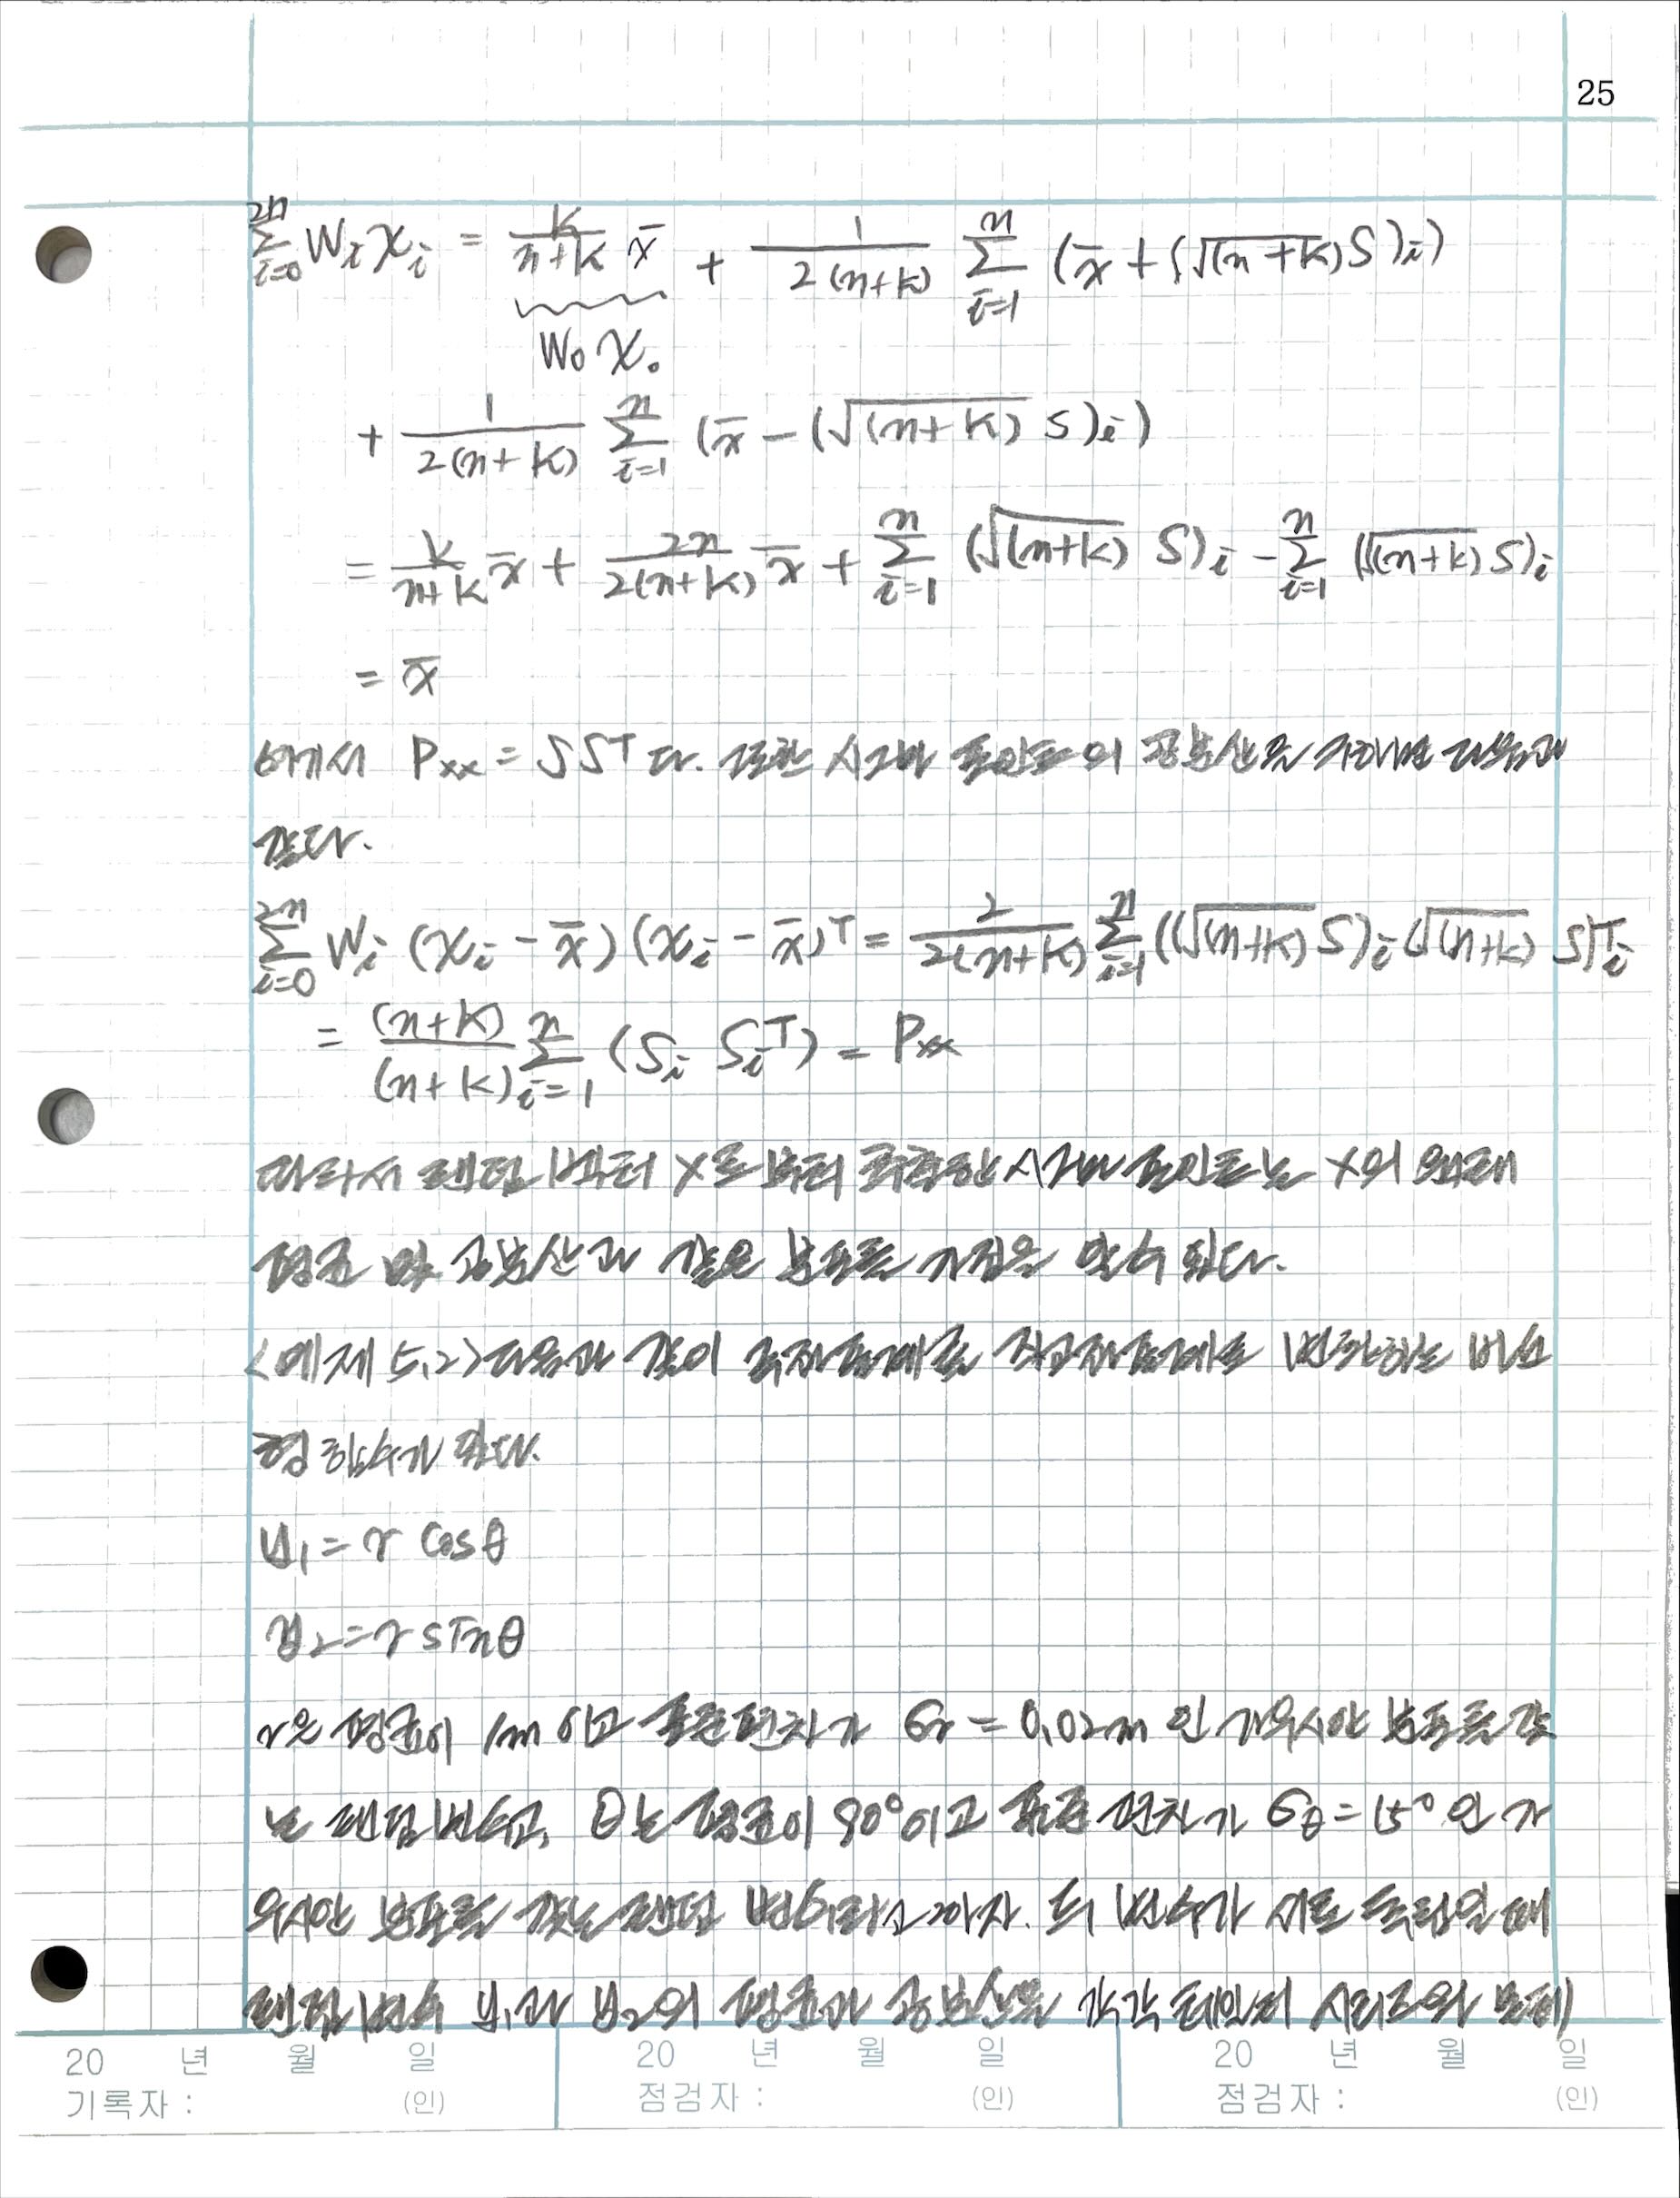 25
$\sum_{i=0}^{2n} W_i \chi_i = \frac{k}{n+k} \bar{x} + \frac{1}{2(n+k)} \sum_{i=1}^{n} (\bar{x} + (\sqrt{(n+k)} S)_i)$
$W_0 \chi_0$
$+ \frac{1}{2(n+k)} \sum_{i=1}^{n} (\bar{x} - (\sqrt{(n+k)} S)_i)$
$= \frac{k}{n+k} \bar{x} + \frac{2n}{2(n+k)} \bar{x} + \sum_{i=1}^{n} (\sqrt{(n+k)} S)_i - \sum_{i=1}^{n} (\sqrt{(n+k)} S)_i$
$= \bar{x}$
여기서 $P_{xx} = SS^T$ 다. 또한 시그마 포인트의 공분산을 구하면 다음과
같다.
$\sum_{i=0}^{2n} W_i (\chi_i - \bar{x}) (\chi_i - \bar{x})^T = \frac{2}{2(n+k)} \sum_{i=1}^{n} ((\sqrt{(n+k)} S)_i (\sqrt{(n+k)} S)_i^T$
$= \frac{(n+k)}{(n+k)} \sum_{i=1}^{n} (S_i S_i^T) = P_{xx}$
따라서 랜덤 벡터 X로부터 추출한 시그마 포인트는 X의 원래
평균 및 공분산과 같은 분포를 가짐을 알 수 있다.
<예제 5.2> 다음과 같이 극좌표계를 직교좌표계로 변환하는 비선
형 함수가 있다.
$y_1 = r \cos\theta$
$y_2 = r \sin\theta$
r은 평균이 1m이고 표준편차가 $\sigma_r = 0.02m$ 인 가우시안 분포를 갖
는 랜덤변수고, θ는 평균이 90°이고 표준편차가 $\sigma_\theta = 15°$인 가
우시안 분포를 갖는 랜덤 변수라고 하자. 두 변수가 서로 독립일 때
랜덤변수 $y_1$과 $y_2$의 평균과 공분산을 각각 테일러 시리즈와
20 년 월 일 20 년 월 일 20 년 월 일
기록자 : (인) 점검자 : (인) 점검자 : (인)